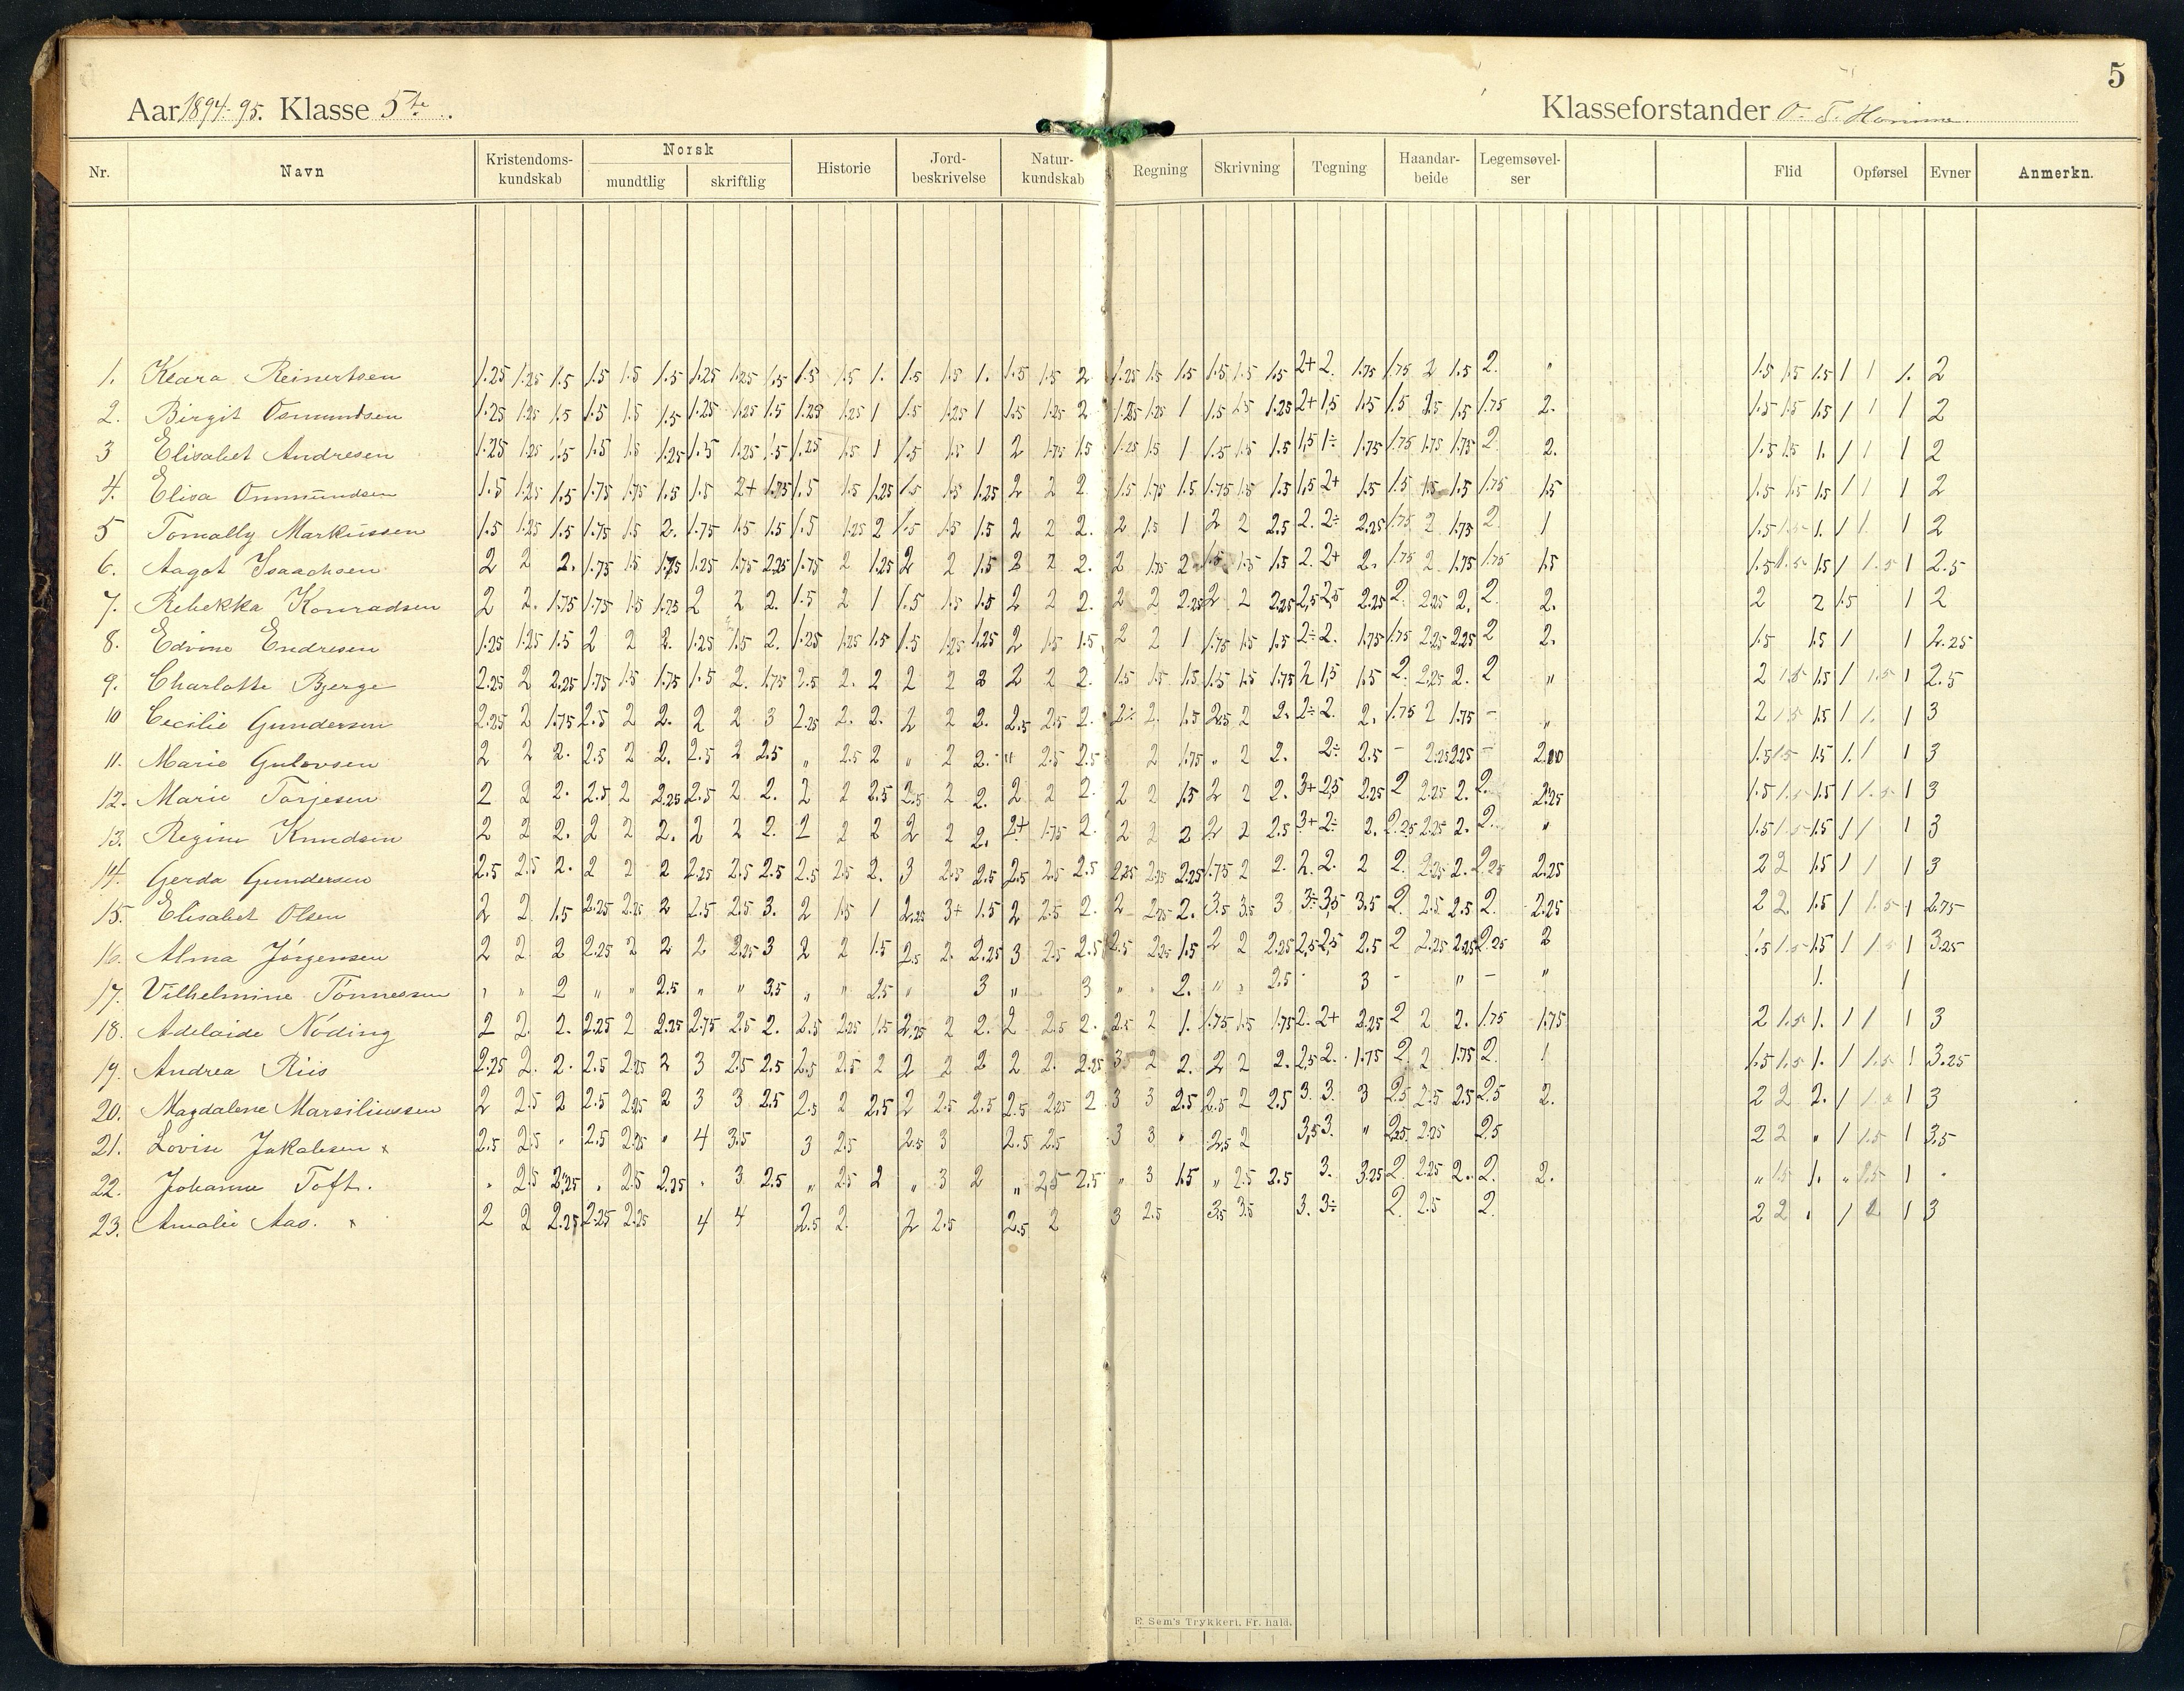 5
Aar 1894-95. Klasse 5te
Klasseforstander O. T. Homme.
Nr. Navn Kristendoms-kundskab Norsk mundtlig skriftlig Historie Jord-beskrivelse Natur-kundskab Regning Skrivning Tegning Haandar-beide Legemsøvel-ser Flid Opførsel Evner Anmerkn.
1. Klara Reinertsen 1.25 1.25 1.5 1.5 1.5 1.5 1.25 1.25 1.5 1.5 1.5 1. 1.5 1.5 1. 1.5 1.5 2 1.25 1.5 1.5 1.5 1.5 1.5 2+ 2. 1.75 1.75 2 1.5 2. " 1.5 1.5 1.5 1 1 1. 2
2. Birgit Osmundsen 1.25 1.25 1.5 1.5 1.5 1.5 1.25 1.25 1.5 1.25 1.25 1 1.5 1.25 1 1.5 1.25 2 1.25 1.25 1 1.5 1.5 1.25 2+ 1,5 1.5 1.5 1.5 1.5 1.75 2. 1.5 1.5 1.5 1 1 1 2
3 Elisabet Andresen 1.25 1.25 1.5 1.5 1.5 1.25 1.5 1.25 1.5 1.25 1.5 1 1.5 1.5 1 2 1.75 1.5 1.25 1.5 1 1.5 1.5 1.5 1,5 1÷ 1.75 1.75 1.75 1.75 2. 2. 1.5 1.5 1. 1 1 1 2
4. Elisa Ommundsen 1.5 1.25 1.5 1.75 1.75 1.5 1.5 2+ 1.75 1.5 1.5 1.25 1.5 1.5 1.25 2 2 2 1.5 1.75 1.5 1.75 1.5 1.5 1,5 2+ 1.5 1.5 1.5 1.5 1.75 1.5 1.5 1.5 1.5 1 1 1 2
5 Tomally Markussen 1.5 1.25 1.5 1.75 1.5 2. 1.75 1.5 1.5 1.5 1.25 2 1.5 1.5 1.5 2 2 2. 2 1.5 1 2 2 2.5 2. 2÷ 2.25 1.75 2 1.75 2. 1 1.5 1.5 1. 1 1. 1 2
6. Aagot Isaachsen 2 2 2. 1.75 1.5 1.75 1.25 1.75 2.25 1.75 2 1.25 2 2 1.5 2 2 2. 2 1.75 2 1.5 1.5 1.5 2. 2+ 2. 1.75 2 1.75 1.75 1.5 1.5 1.5 1.5 1 1.5 1 2.5
7. Rebekka Konradsen 2 2. 1.75 1.75 1.5 1.75 2 2 2. 1.5 2 1 1.5 1.5 1.5 2 2 2. 2 2 2.25 2 2 2.25 2,5 2,5 2.25 2. 2.25 2. 2. 2. 2 2 1.5 1 2
8. Edvine Endresen 1.25 1.25 1.5 2 2 2. 1.25 1.5 2. 1.25 1.25 1.5 1.5 1.25 1.25 2 1.5 1.5 2 2 1 1.75 1.5 1.5 2÷ 2. 1.75 1.75 2.25 2.25 2 2. 1.5 1.5 1 1 2.25
9. Charlotte Bjerge 2.25 2 2.25 1.75 1.5 1.75 1.5 2. 1.75 2.5 2. 2 2 2 2 2 2 2. 1.5 1.5 1.5 1.5 1.5 1.75 2 1,5 1.5 2. 2.25 2. 2 " 2 1.5 1.5 1 1.5 1 2.5
10 Cecilie Gundersen 2.25 2 1.75 2.5 2 2. 2 2 3 2.25 2. 2. 2 2 2. 2.5 2.5 2. 2÷ 2. 1.5 2.5 2 2. 2÷ 2. 2. 1.75 2 1.75 - " 2 1.5 1.5 1 1. 1 3
11. Marie Gulovsen 2 2 2. 2.5 2 2. 2.5 2 2.5 " 2.5 2 " 2 2. " 2.5 2.5 2 1.75 " 2 2. 2÷ 2.5 - 2.25 2.25 - 2.00 1.5 1.5 1.5 1. 1 1 3
12. Marie Torjesen 2 2 2. 2.5 2 2.25 2.5 2 2. 2 2 2.5 2.5 2 2. 2 2 2. 2 2 1.5 2 2 2. 3+ 2,5 2.25 2 2.25 2. 2. 2.25 1.5 1.5 1.5 1 1.5 1 3
13. Regine Knudsen 2 2 2. 2 2 2. 2 2 2. 2 2 2 2 2 2. 2+ 1.75 2. 2 2 2 2 2 2.5 3+ 2÷ 2. 2.25 2.25 2. 2. " 1.5 1.5 1.5 1 1 1 3
14. Gerda Gundersen 2.5 2.5 2. 2 2 2 2.25 2.5 2.5 2.5 2.5 2. 3 2.5 2.5 2.5 2.5 2.5 2.25 2.25 2.25 1.75 2 2. 2. 2. 2 2. 2.25 2. 2.25 2.25 2 2 1.5 1 1 1 3
15. Elisabet Olsen 2 2 1.5 2.25 2.25 2 2.5 2.5 3. 2 1.5 1 2.25 3+ 1.5 2 2.5 2. 2 2.25 2. 3.5 3.5 3 3÷ 3,5 3.5 2. 2.5 2.5 2. 2.25 2 2 1.5 1 1.5 1 2.75
16. Alma Jörgensen 2 2 2 2.25 2 2 2 2.25 3 2 2 1.5 2.5 2. 2.25 3 2.5 2.5 2.5 2.25 1.5 2 2 2.25 2,5 2,5 2.5 2 2.25 2.25 2.25 2 1.5 1.5 1.5 1 1.5 1 3.25
17. Vilhelmine Tönnessen " " 2 " " 2.5 " " 3.5 " " 2.5 " 3 " 3 " " 2. " " 2.5 - 3 - " - " 1. 1
18. Adelaide Nöding 2 2. 2. 2.25 2 2.25 2.75 2.5 2. 2.5 2.25 1.5 2.25 2 2. 2 2.5 2. 2.5 2 1. 1.75 1.5 1.75 2. 2+ 2.25 2 2 2. 1.75 1.75 2 1.5 1. 1 1 1 3
19. Andrea Riis 2.25 2. 2. 2.5 2.25 2 3 2.5 2.5 2.5 2.5 2 2 2 2 2 2. 2.25 3 2 2. 2 2 2. 2,5 2. 1.75 2. 2 1.75 2. 1 1.5 1.5 1. 1 1.5 1 3.25
20. Magdalene Marsiliussen 2 2.5 2 2.5 2.25 2 3 3 2.5 2.5 2 2.5 2 2.5 2.5 2.5 2.25 2 3 3 2.5 2.5 2 2.5 3. 3. 3 2.5 2.5 2.5 2.5 2. 2 2 2. 1 1 1 3
21. Lovise Jakobsen x 2.5 2.5 " 2.5 2.25 " 4 3.5 3 2.5 2.5 3 2.5 2.5 3 3 " 2.5 2 3,5 3. " 2.25 2.25 2.5 2 2 " 1 1.5 1 3.5
22. Johanne Toft. " 2.5 2.25 " 2.5 2.25 " 3 2.5 " 2.5 2 " 3 2 " 2,5 2.5 " 3 1.5 " 2.5 2.5 3. 3.25 2 2.25 2. 2. 2. " 1.5 1. " 1.5 1 .
23. Amalie Aas. x 2 2 2.25 2.25 2.25 4 4 2.5 2. 2 2.5 2.5 2 3 2.5 3.5 3.5 3. 3÷ 2. 2.5 2. 2 2 . 1 2 1 3
E. Sem's Trykkeri, Fr. hald.